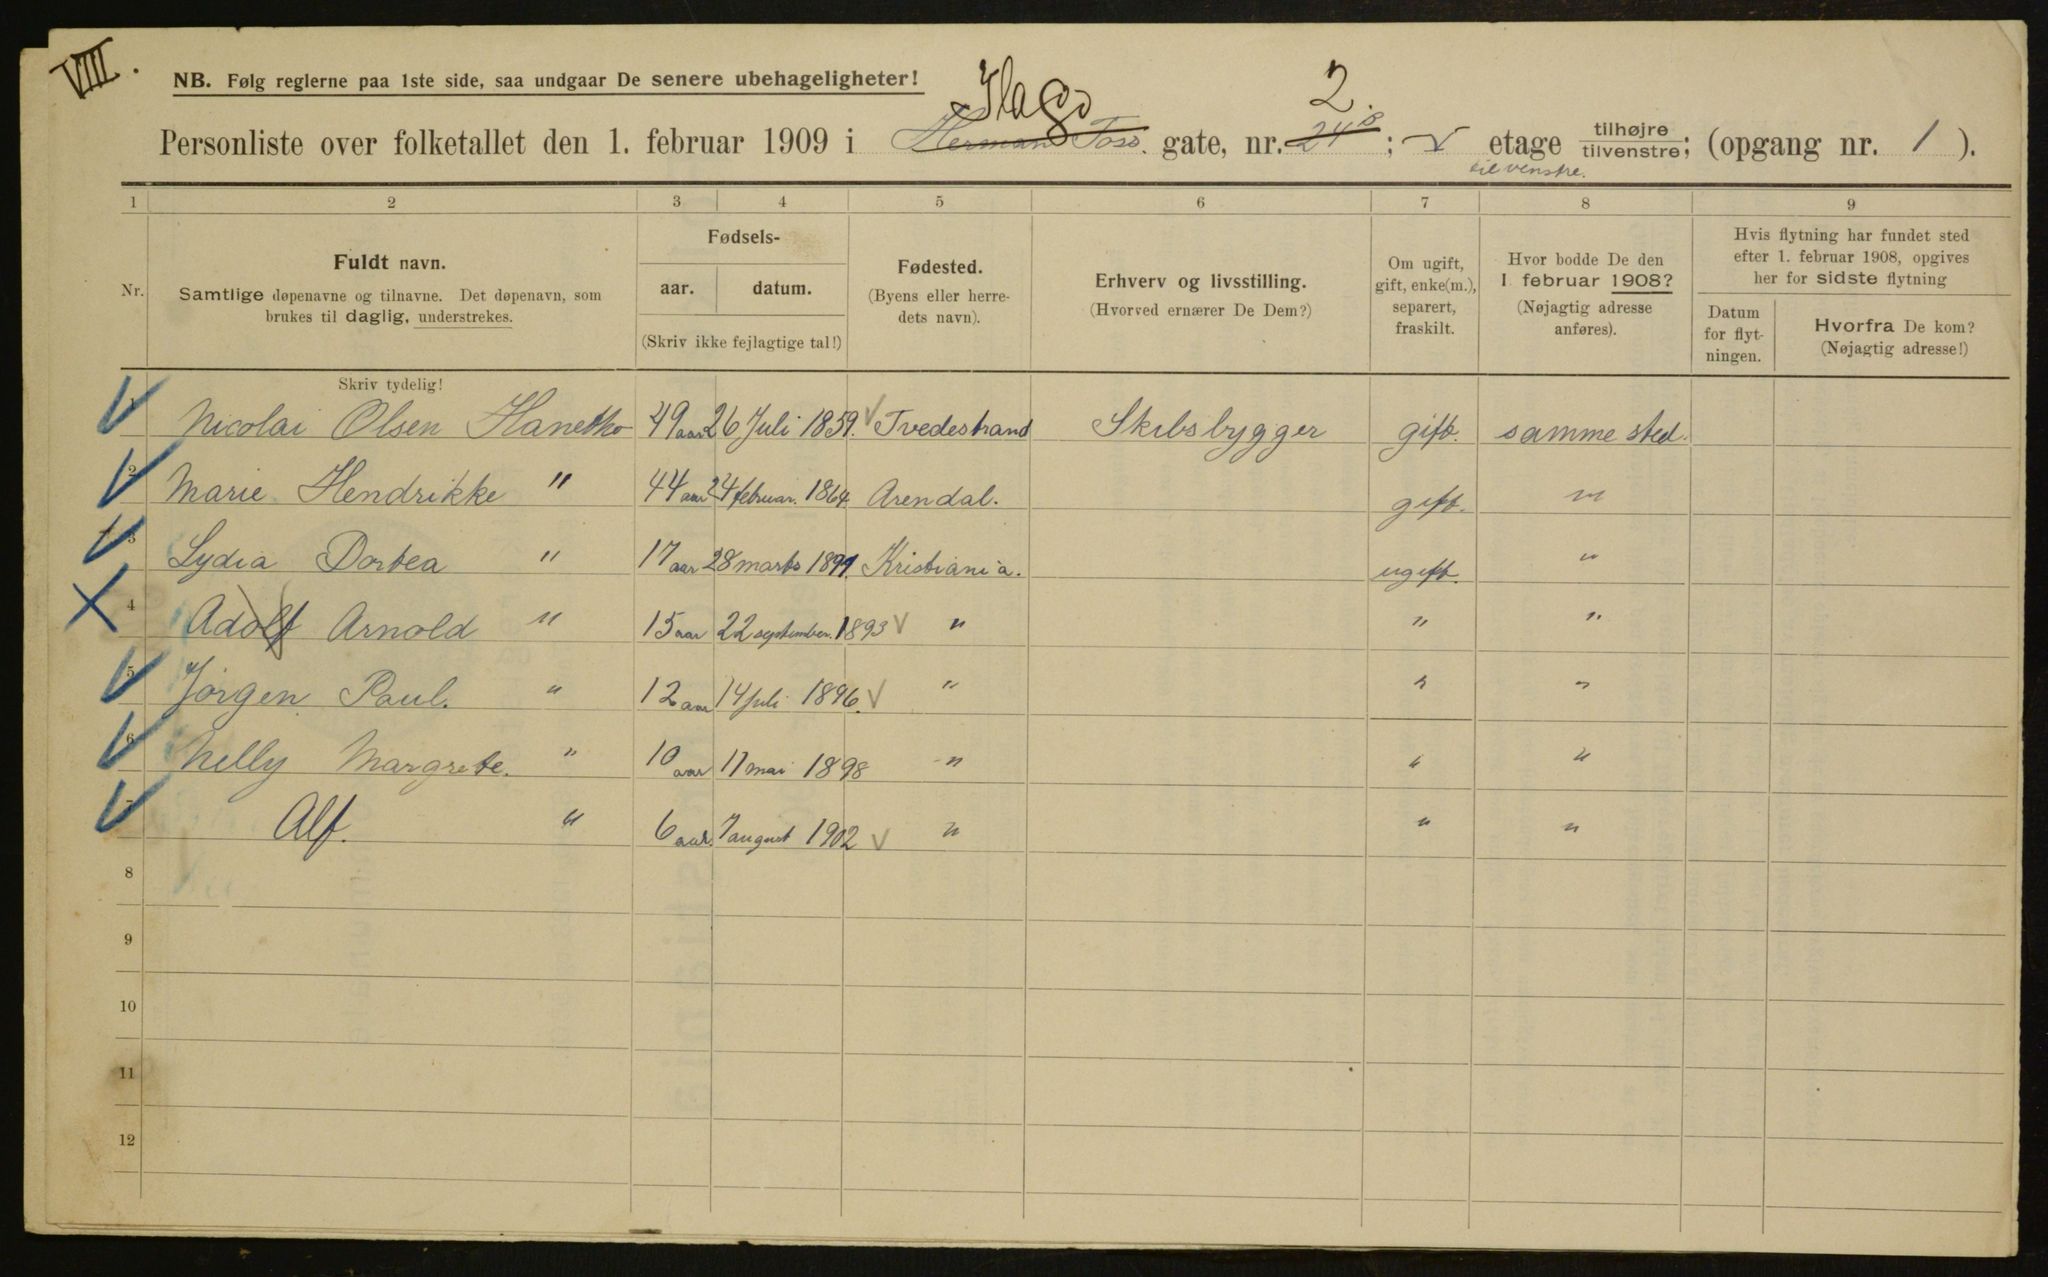 VIII.
NB. Følg reglerne paa 1ste side, saa undgaar De senere ubehageligheter!
Ila 2.
Personliste over folketallet den 1. februar 1909 i Herman Foss. gate, nr. 24 B; V etage tilhøjre tilvenstre; (opgang nr. 1).
tilvenstre.
1 2 3 4 5 6 7 8 9
Nr.
Fuldt navn.
Samtlige døpenavne og tilnavne. Det døpenavn, som
brukes til daglig, understrekes.
Fødsels-
aar. datum.
(Skriv ikke fejlagtige tal!)
Fødested.
(Byens eller herre-
dets navn).
Erhverv og livsstilling.
(Hvorved ernærer De Dem?)
Om ugift,
gift, enke(m.),
separert,
fraskilt.
Hvor bodde De den
1 februar 1908?
(Nøjagtig adresse
anføres).
Hvis flytning har fundet sted
efter 1. februar 1908, opgives
her for sidste flytning
Datum
for flyt-
ningen.
Hvorfra De kom?
(Nøjagtig adresse!)
Skriv tydelig!
1 Nicolai Olsen Hanetho 49 aar 26 Juli 1859. Tvedestrand Skibsbygger gift. samme sted.
2 Marie Hendrikke " 44 aar 24 februar. 1864 Arendal. gift. "
3 Lydia Dortea " 17 aar 28 marts 1891. Kristiania. ugift. "
4 Adolf Arnold " 15 aar 22 september. 1893 " " "
5 Jörgen Paul. " 12 aar 14 juli 1896. " " "
6 Nelly Margrete. " 10 aar 11 mai 1898 " " "
7 Alf. " 6 aar. 7 august 1902 " " "
8
9
10
11
12